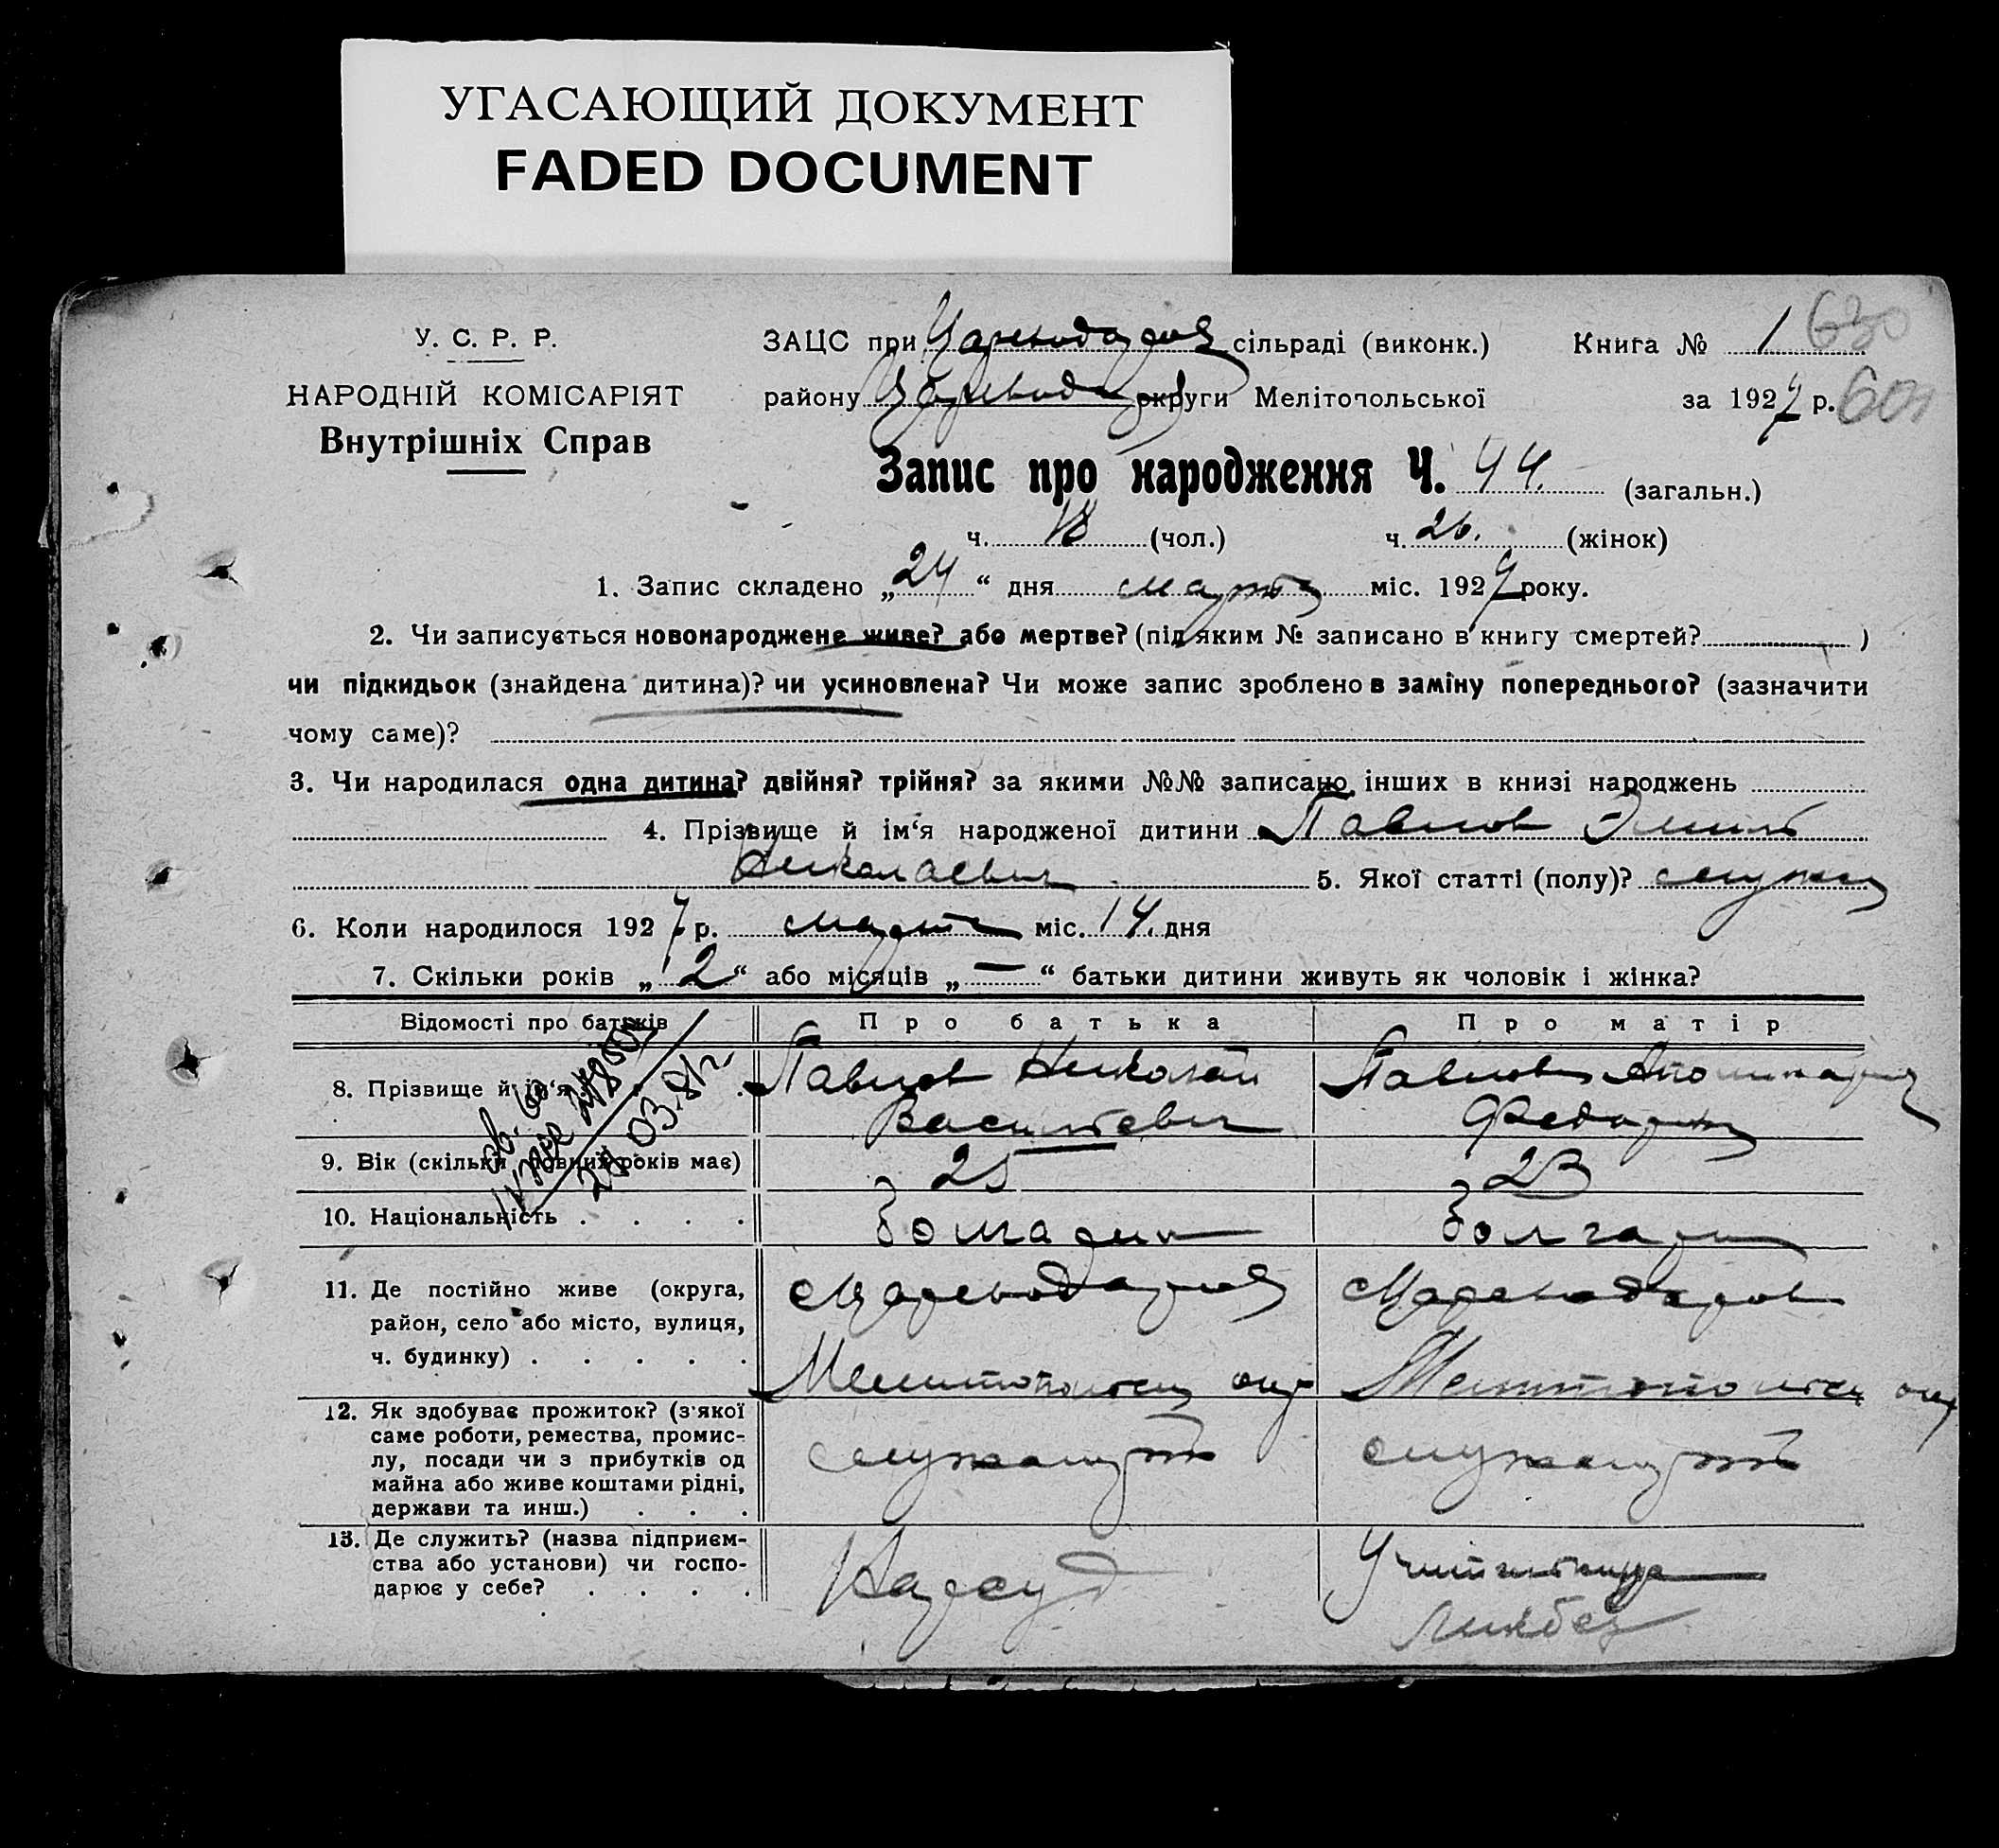 УГАСАЮЩИЙ ДОКУМЕНТ
FADED DOCUMENT
У. С. Р. Р.
НАРОДНІЙ КОМІСАРІЯТ
Внутрішніх Справ
ЗАЦС при сільраді (виконк.) Книга № 1 630
району округи Мелітопольської за 1927 р. 601
Запис про народження Ч. 44. (загальн.)
ч. 18 (чол.) ч. 26. (жінок)
1. Запис складено „24“ дня марта міс. 1927 року.
2. Чи записується новонароджене живе? або мертве? (під яким № записано в книгу смертей? )
чи підкидьок (знайдена дитина)? чи усиновлена? Чи може запис зроблено в заміну попереднього? (зазначити
чому саме)?
3. Чи народилася одна дитина? двійня? трійня? за якими №№ записано інших в книзі народжень
4. Прізвище й ім‘я народженої дитини Павлов Эмиль
Николаевич 5. Якої статті (полу)?
6. Коли народилося 1927 р. марта міс. 14. дня
7. Скільки років „2“ або місяців „—“ батьки дитини живуть як чоловік і жінка?
Відомості про батьків Про батька Про матір
8. Прізвище й ім‘я Павлов Николай Павлова
Васильевич
9. Вік (скільки повних років має) 25 23
10. Національність . . . . болгарин болгарин
11. Де постійно живе (округа, Цареводаров
район, село або місто, вулиця,
ч. будинку) . . . . . Мелитопольск окр Мелитопольск окр
12. Як здобуває прожиток? (з якої
саме роботи, ремества, промис-
лу, посади чи з прибутків од служащий служащий
майна або живе коштами рідні,
держави та инш.) . . .
13. Де служить? (назва підприєм-
ства або установи) чи госпо- Нарсуд Учительница
дарює у себе? . . . . Ликбез